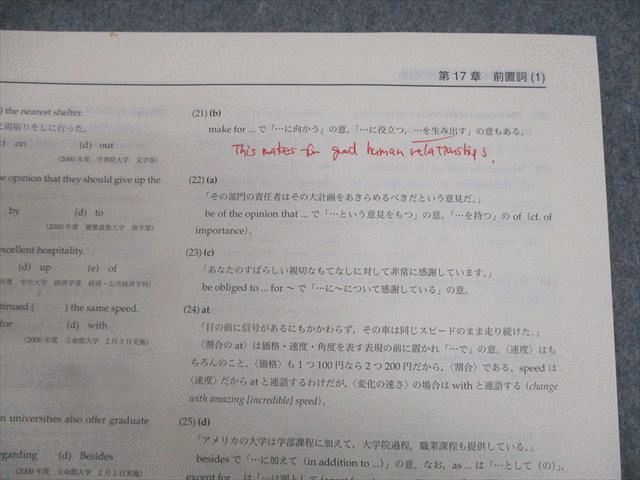 第 17 章　前置詞 (1)
) the nearest shelter.
に雨宿りをしに行った。
) on (d) out
(2000 年度　学習院大学　文学部)
e opinion that they should give up the
by (d) to
(2000 年度　慶應義塾大学　商学部)
excellent hospitality.
(d) up (e) of
年度　中央大学　経済学部　経済・公共経済学科)
tinued ( ) the same speed.
for (d) with
(2000 年度　立命館大学　2 月 3 日実施)
n universities also offer graduate
egarding (d) Besides
(2000 年度　立命館大学　2 月 3 日実施)
(21) (b)
make for ... で「…に向かう」の意。「…に役立つ，…を生み出す」の意もある。
This makes for good human relationships.
(22) (a)
「その部門の責任者はその大計画をあきらめるべきだという意見だ。」
be of the opinion that ... で「…という意見をもつ」の意。「…を持つ」の of (cf. of
importance)。
(23) (c)
「あなたのすばらしい親切なもてなしに対して非常に感謝しています。」
be obliged to ... for ～ で「…に～について感謝している」の意。
(24) at
「目の前に信号があるにもかかわらず，その車は同じスピードのまま走り続けた。」
〈割合の at〉は価格・速度・角度を表す表現の前に置かれ「…で」の意。〈速度〉はも
ちろんのこと，〈価格〉も 1 つ 100 円なら 2 つ 200 円だから，〈割合〉である。speed は
〈速度〉だから at と連語するわけだが，〈変化の速さ〉の場合は with と連語する (change
with amazing [incredible] speed)。
(25) (d)
「アメリカの大学は学部課程に加えて，大学院過程，職業課程も提供している。」
besides で「…に加えて (in addition to ...)」の意。なお，as ... は「…として（の）」，
except for ... は「…は別として